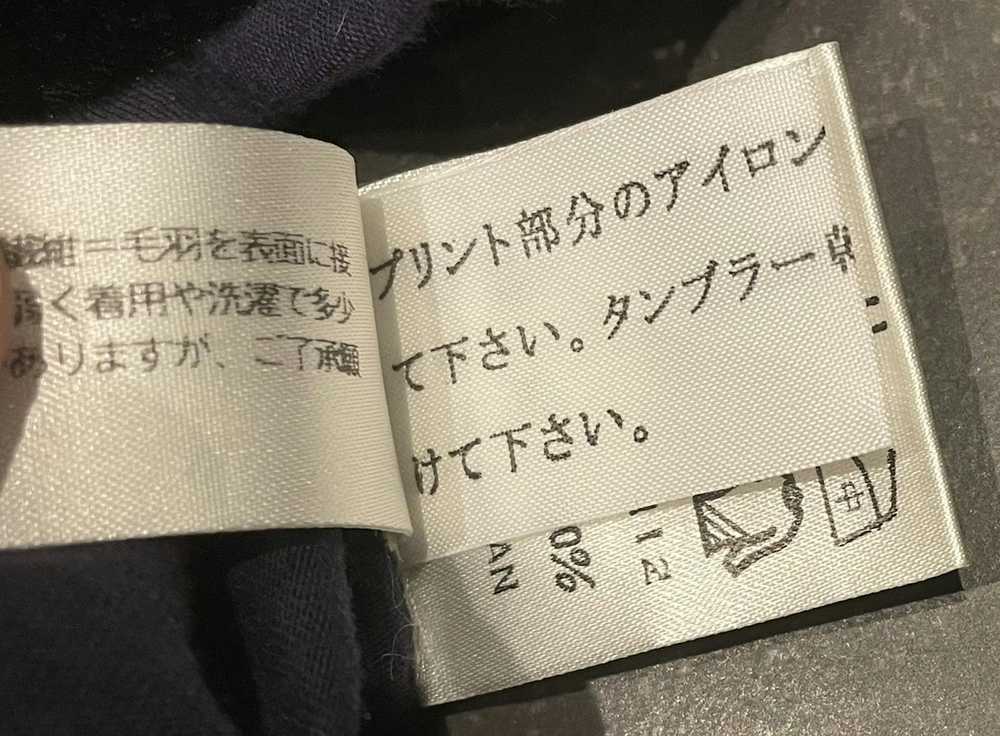 繊維＝毛羽を表面に接
く着用や洗濯で多少
ありますが、ご了承願
プリント部分のアイロン
て下さい。タンブラー乾
けて下さい。
中
112
0%
AN